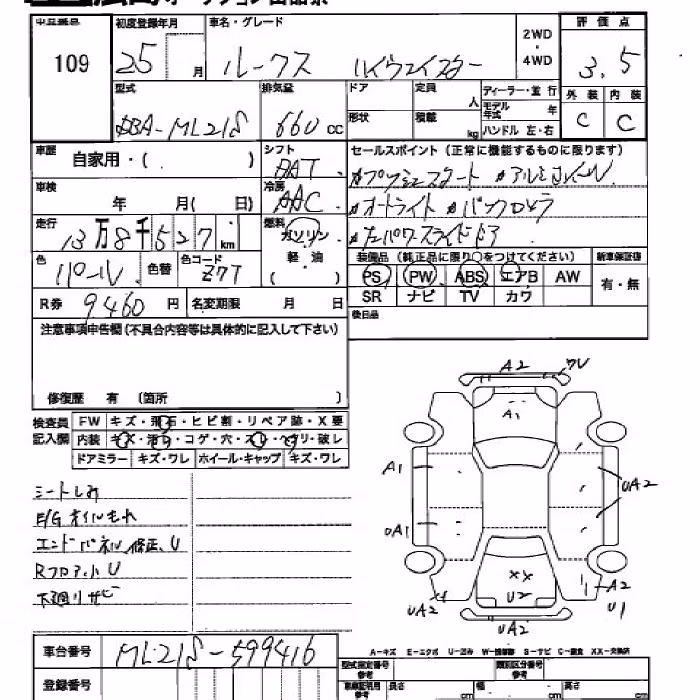 オークション出品票
109
初度登録年月
25 月
車名・グレード
ルークス ハイウェイスター
2WD・4WD
評価点
3.5
型式
DBA-ML21S
排気量
660 cc
ドア
形状
定員 人
積載 kg
ディーラー・並行
モデル年式 年
ハンドル 左・右
外装 C
内装 C
車歴 自家用・( )
シフト AT
車検 年 月( 日)
冷房 AAC
走行 13万8千527km
燃料 ガソリン・軽油 ( )
色 パール 色替 色コード Z7T
R券 9460円 名変期限 月 日
セールスポイント(正常に機能するものに限ります)
プッシュスタート アルミホイル
オートライト バックカメラ
左パワースライドドア
装備品(純正品に限り○をつけてください) 新車保証書
PS PW ABS エアB AW 有・無
SR ナビ TV カワ
後日品
注意事項申告欄(不具合内容等は具体的に記入して下さい)
修復歴 有 (箇所 )
検査員記入欄
FW キズ・飛石・ヒビ割・リペア跡・X要
内装 キズ・汚れ・コゲ・穴・スレ・ヘタリ・破レ
ドアミラー キズ・ワレ ホイール・キャップ キズ・ワレ
シートしみ
E/Gオイルもれ
エンドパネル修正、U
Rフロア小U
下廻りサビ
A2 ワレ
A1
A1
UA2
UA1
XX
U2
A2
U1
UA2
UA2
A-キズ E-エクボ U-凹み W-補修跡 S-サビ C-腐食 XX-交換済
車台番号 ML21S-599416
登録番号
型式指定番号 参考
類別区分番号 参考
車庫証明用 参考
長さ cm 幅 cm 高さ cm